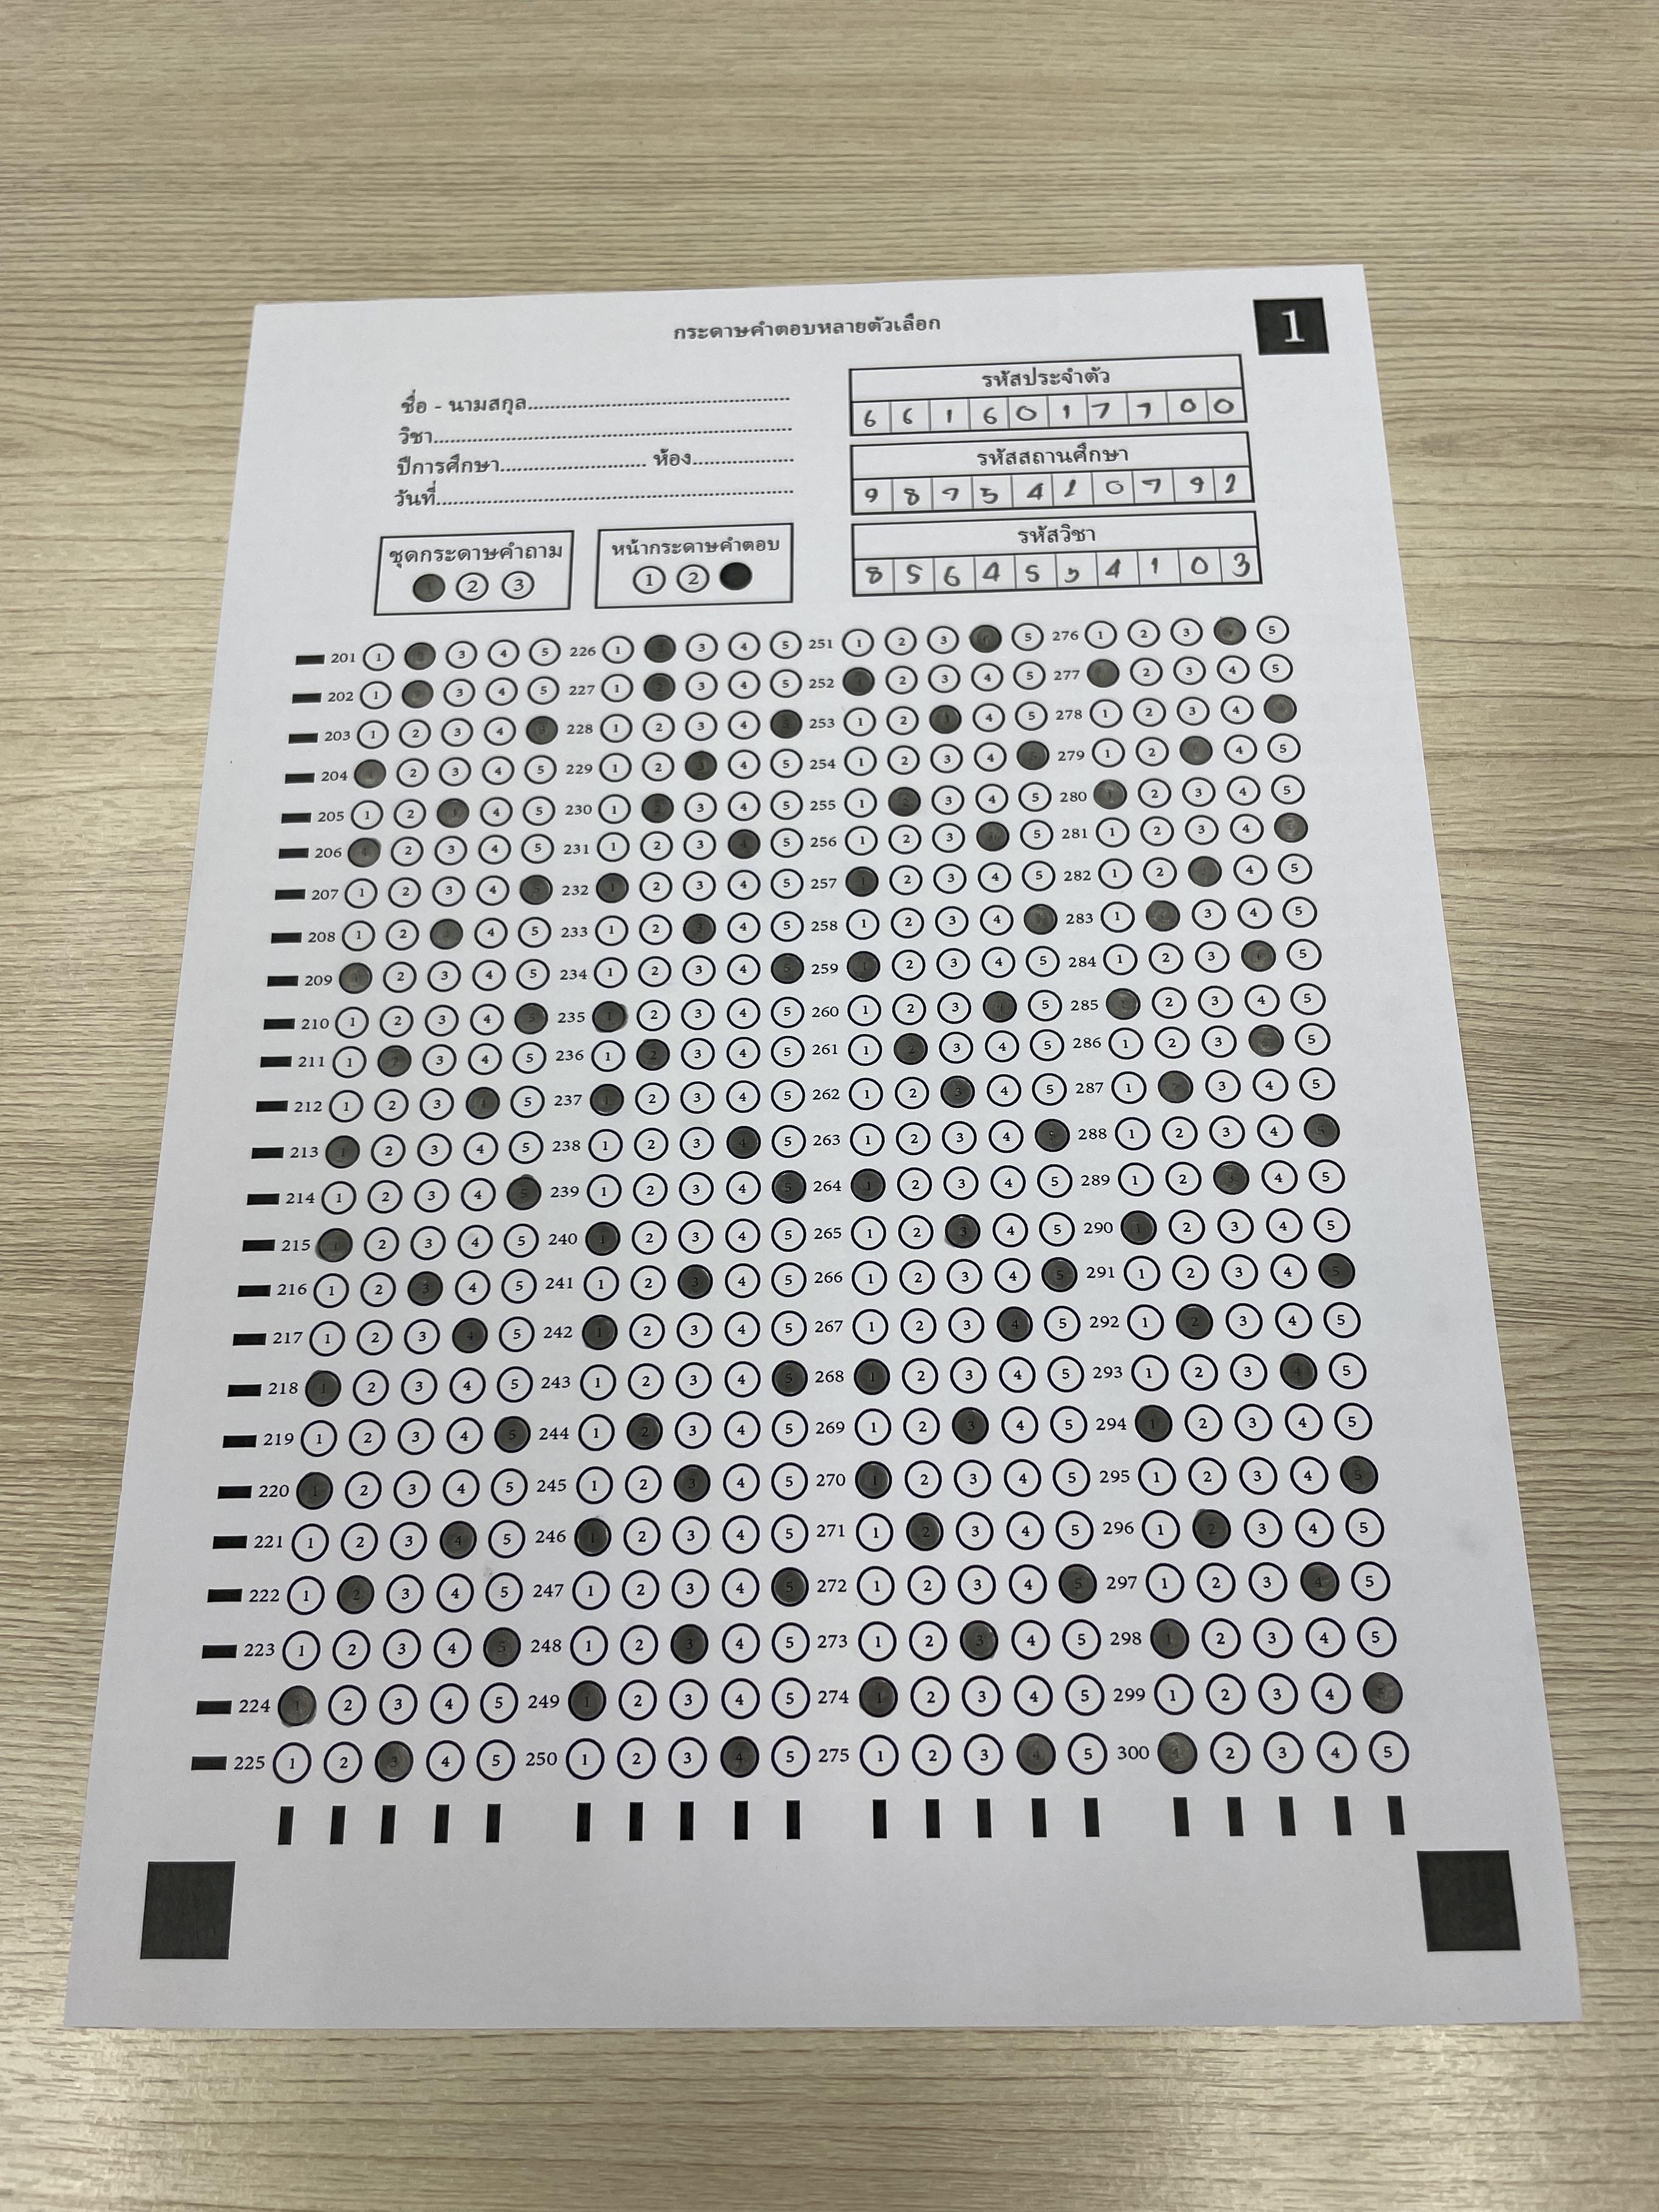 กระดาษคำตอบหลายตัวเลือก
1
ชื่อ - นามสกุล
วิชา
ปีการศึกษา ห้อง
วันที่
รหัสประจำตัว
6 6 1 6 0 1 7 7 0 0
รหัสสถานศึกษา
9 8 7 5 4 1 0 7 9 2
รหัสวิชา
8 5 6 4 5 5 4 1 0 3
ชุดกระดาษคำถาม
1 2 3
หน้ากระดาษคำตอบ
1 2
201 1 2 3 4 5 226 1 2 3 4 5 251 1 2 3 4 5 276 1 2 3 4 5
202 1 2 3 4 5 227 1 2 3 4 5 252 1 2 3 4 5 277 1 2 3 4 5
203 1 2 3 4 5 228 1 2 3 4 5 253 1 2 3 4 5 278 1 2 3 4 5
204 1 2 3 4 5 229 1 2 3 4 5 254 1 2 3 4 5 279 1 2 3 4 5
205 1 2 3 4 5 230 1 2 3 4 5 255 1 2 3 4 5 280 1 2 3 4 5
206 1 2 3 4 5 231 1 2 3 4 5 256 1 2 3 4 5 281 1 2 3 4 5
207 1 2 3 4 5 232 1 2 3 4 5 257 1 2 3 4 5 282 1 2 3 4 5
208 1 2 3 4 5 233 1 2 3 4 5 258 1 2 3 4 5 283 1 2 3 4 5
209 1 2 3 4 5 234 1 2 3 4 5 259 1 2 3 4 5 284 1 2 3 4 5
210 1 2 3 4 5 235 1 2 3 4 5 260 1 2 3 4 5 285 1 2 3 4 5
211 1 2 3 4 5 236 1 2 3 4 5 261 1 2 3 4 5 286 1 2 3 4 5
212 1 2 3 4 5 237 1 2 3 4 5 262 1 2 3 4 5 287 1 2 3 4 5
213 1 2 3 4 5 238 1 2 3 4 5 263 1 2 3 4 5 288 1 2 3 4 5
214 1 2 3 4 5 239 1 2 3 4 5 264 1 2 3 4 5 289 1 2 3 4 5
215 1 2 3 4 5 240 1 2 3 4 5 265 1 2 3 4 5 290 1 2 3 4 5
216 1 2 3 4 5 241 1 2 3 4 5 266 1 2 3 4 5 291 1 2 3 4 5
217 1 2 3 4 5 242 1 2 3 4 5 267 1 2 3 4 5 292 1 2 3 4 5
218 1 2 3 4 5 243 1 2 3 4 5 268 1 2 3 4 5 293 1 2 3 4 5
219 1 2 3 4 5 244 1 2 3 4 5 269 1 2 3 4 5 294 1 2 3 4 5
220 1 2 3 4 5 245 1 2 3 4 5 270 1 2 3 4 5 295 1 2 3 4 5
221 1 2 3 4 5 246 1 2 3 4 5 271 1 2 3 4 5 296 1 2 3 4 5
222 1 2 3 4 5 247 1 2 3 4 5 272 1 2 3 4 5 297 1 2 3 4 5
223 1 2 3 4 5 248 1 2 3 4 5 273 1 2 3 4 5 298 1 2 3 4 5
224 1 2 3 4 5 249 1 2 3 4 5 274 1 2 3 4 5 299 1 2 3 4 5
225 1 2 3 4 5 250 1 2 3 4 5 275 1 2 3 4 5 300 1 2 3 4 5